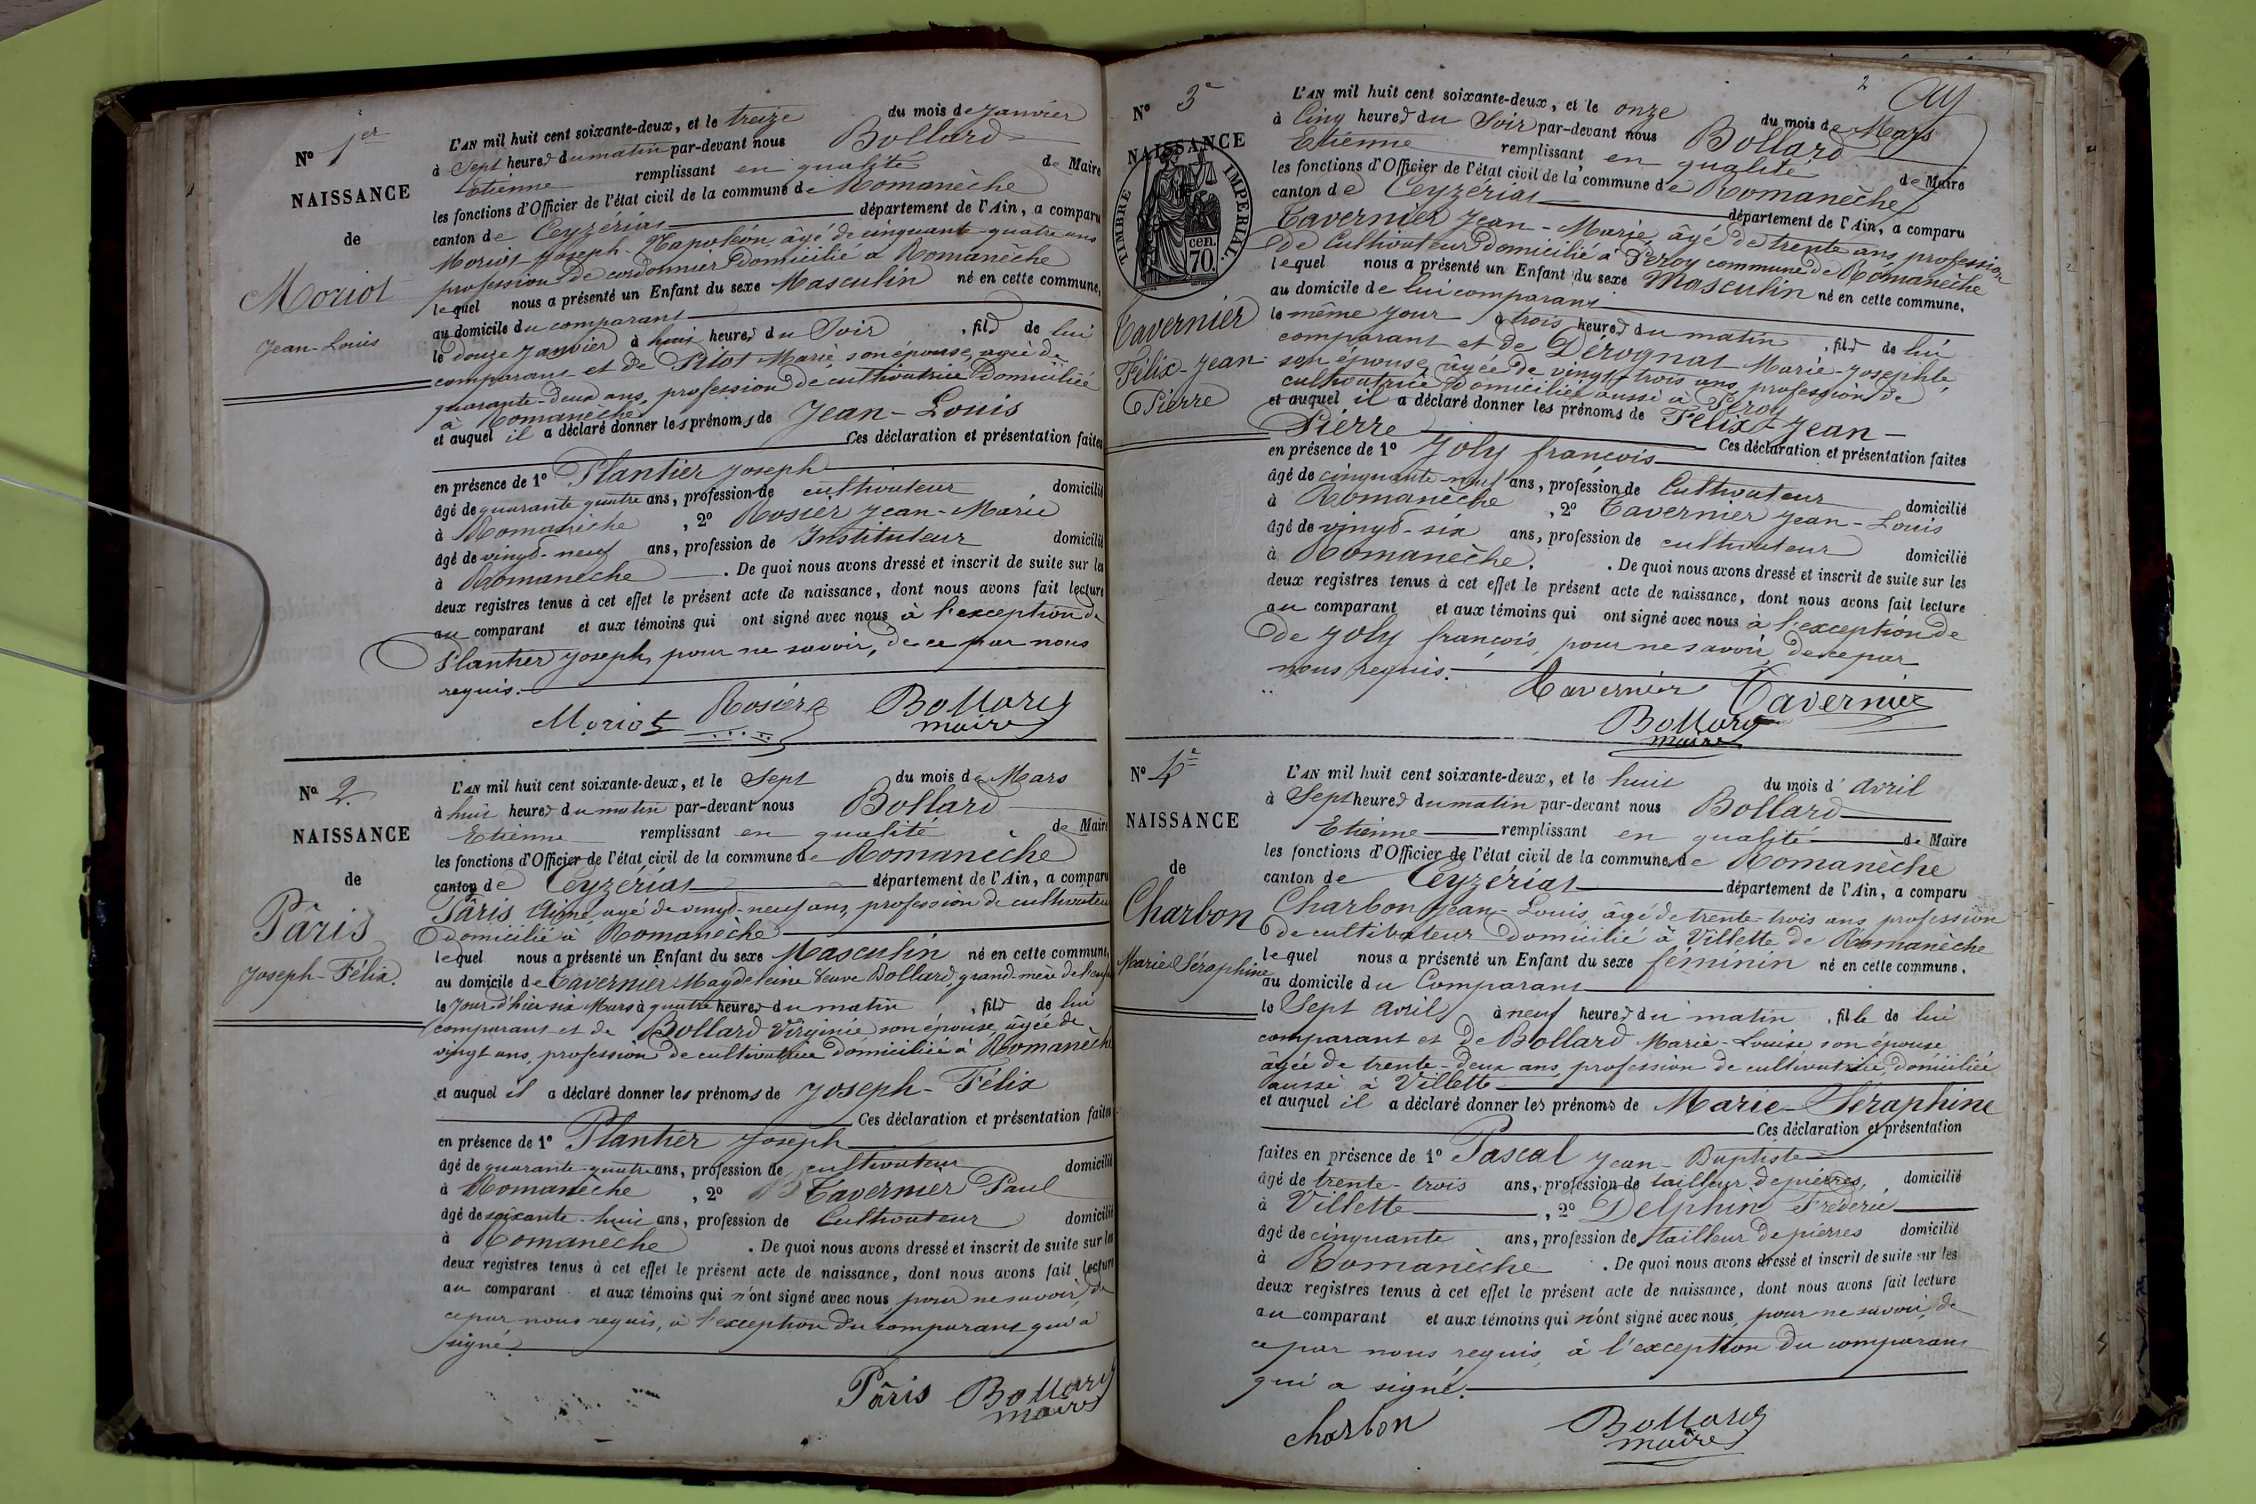 No 1er
NAISSANCE
de
Moriot
Jean-Louis
L'AN mil huit cent soixante-deux, et le treize du mois de Janvier
à Sept heures du matin par-devant nous Bollard
Etienne remplissant en qualité de Maire
les fonctions d'Officier de l'état civil de la commune de Romanèche
canton de Ceyzériat département de l'Ain, a comparu
Moriot Joseph-Napoléon, âgé de cinquante-quatre ans
profession de cordonnier domicilié à Romanèche
lequel nous a présenté un Enfant du sexe Masculin né en cette commune,
au domicile du comparant
le douze Janvier à huit heures du Soir , fils de lui
comparant et de Pitot Marie, son épouse, agée de
quarante-deux ans, profession de cultivatrice domiciliée
à Romanèche
et auquel il a déclaré donner les prénoms de Jean-Louis
Ces déclaration et présentation faites
en présence de 1o Plantier Joseph
âgé de quarante quatre ans, profession de cultivateur domicilié
à Romanèche , 2o Rosier Jean-Marie
âgé de vingt-neuf ans, profession de Instituteur domicilié
à Romanèche . De quoi nous avons dressé et inscrit de suite sur les
deux registres tenus à cet effet le présent acte de naissance, dont nous avons fait lecture
au comparant et aux témoins qui ont signé avec nous à l'exception de
Plantier Joseph, pour ne savoir, de ce par nous
requis.
Moriot Rosier Bollard
maire
No 2.
NAISSANCE
de
Pâris
Joseph-Félix.
L'AN mil huit cent soixante-deux, et le Sept du mois de Mars
à huit heures du matin par-devant nous Bollard
Etienne remplissant en qualité de Maire
les fonctions d'Officier de l'état civil de la commune de Romanèche
canton de Ceyzériat département de l'Ain, a comparu
Pâris Aimé, agé de vingt-neuf ans, profession de cultivateur
domicilié à Romanèche
lequel nous a présenté un Enfant du sexe Masculin né en cette commune,
au domicile de Tavernier Magdeleine Veuve Bollard, grand mère de l'enfant
le Jour d'hier six Mars à quatre heures du matin , fils de lui
comparant et de Bollard Virginie son épouse, âgée de
vingt ans, profession de cultivatrice domiciliée à Romanèche
et auquel il a déclaré donner les prénoms de Joseph-Félix
Ces déclaration et présentation faites
en présence de 1o Plantier Joseph
âgé de quarante-quatre ans, profession de cultivateur domicilié
à Romanèche , 2o Tavernier Paul
âgé de soixante-huit ans, profession de Cultivateur domicilié
à Romanèche . De quoi nous avons dressé et inscrit de suite sur les
deux registres tenus à cet effet le présent acte de naissance, dont nous avons fait lecture
au comparant et aux témoins qui n'ont signé avec nous, pour ne savoir, de
ce par nous requis, à l'exception du comparant qui a
signé.
Pâris Bollard
maire
2
No 3e
NAISSANCE
TIMBRE IMPÉRIAL.
70 cen.
Tavernier
Félix-Jean-
Pierre
L'AN mil huit cent soixante-deux, et le onze du mois de Mars
à Cinq heures du Soir par-devant nous Bollard
Etienne remplissant en qualité de Maire
les fonctions d'Officier de l'état civil de la commune de Romanèche
canton de Ceyzériat département de l'Ain, a comparu
Tavernier Jean-Marie, âgé de trente ans, profession
de Cultivateur domicilié à Péroy commune de Romanèche
lequel nous a présenté un Enfant du sexe Masculin né en cette commune,
au domicile de lui comparant
le même jour à trois heures du matin , fils de lui
comparant et de Dérognat Marie-Josephte,
son épouse, âgée de vingt-trois ans, profession de
cultivatrice domiciliée aussi à Péroy
et auquel il a déclaré donner les prénoms de Félix-Jean-
Pierre Ces déclaration et présentation faites
en présence de 1o Joly françois
âgé de cinquante-neuf ans, profession de Cultivateur domicilié
à Romanèche , 2o Tavernier Jean-Louis
âgé de vingt-six ans, profession de cultivateur domicilié
à Romanèche. . De quoi nous avons dressé et inscrit de suite sur les
deux registres tenus à cet effet le présent acte de naissance, dont nous avons fait lecture
au comparant et aux témoins qui ont signé avec nous à l'exception de
de Joly françois, pour ne savoir, de ce par
nous requis.
Tavernier Tavernier
Bollard
maire
No 4e
NAISSANCE
de
Charbon
Marie Séraphine
L'AN mil huit cent soixante-deux, et le huit du mois d'avril
à Sept heures du matin par-devant nous Bollard
Etienne remplissant en qualité de Maire
les fonctions d'Officier de l'état civil de la commune de Romanèche
canton de Ceyzériat département de l'Ain, a comparu
Charbon Jean-Louis, âgé de trente-trois ans, profession
de cultivateur domicilié à Villette de Romanèche
lequel nous a présenté un Enfant du sexe féminin né en cette commune,
au domicile du Comparant
le Sept avril à neuf heures du matin , fille de lui
comparant et de Bollard Marie-Louise son épouse
âgée de trente-deux ans, profession de cultivatrice, domiciliée
aussi à Villette
et auquel il a déclaré donner les prénoms de Marie-Séraphine
Ces déclaration et présentation
faites en présence de 1o Pascal Jean-Baptiste
âgé de trente-trois ans, profession de tailleur de pierres, domicilié
à Villette , 2o Delphin Fréderic
âgé de cinquante ans, profession de tailleur de pierres domicilié
à Romanèche . De quoi nous avons dressé et inscrit de suite sur les
deux registres tenus à cet effet le présent acte de naissance, dont nous avons fait lecture
au comparant et aux témoins qui n'ont signé avec nous, pour ne savoir, de
ce par nous requis, à l'exception du comparant
qui a signé.
Charbon Bollard
maire